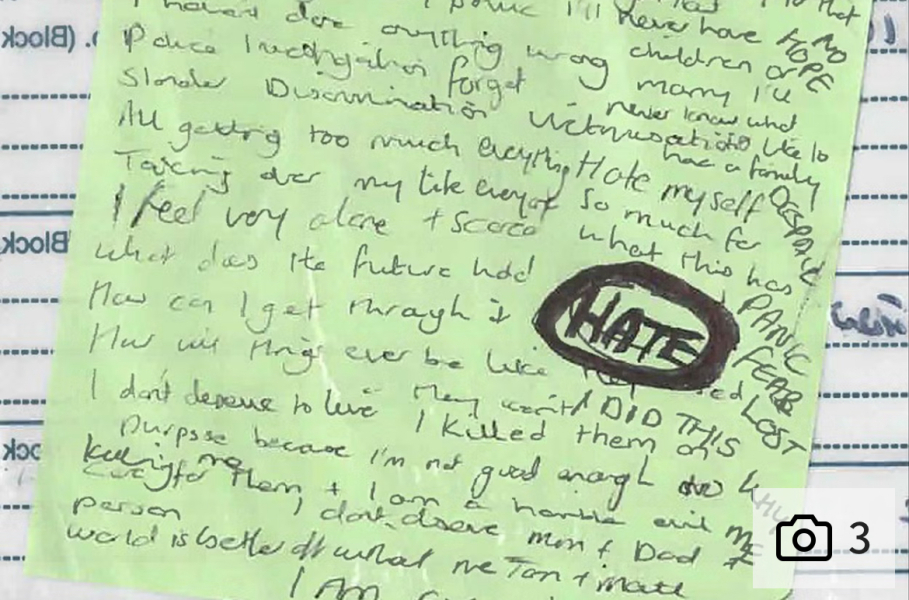 I haven't done
I'll never have
NO
HOPE
anything wrong
children or
Police Investigation
forget
marry I'll
never know what
Slander Discrimination
Victimisation
like to
have a family
All getting too much everything
Hate myself
DESPAIR
Taking over my life everyday
so much for
I feel very alone + scared
what this has
what does the future hold
PANIC
How can I get through it
HATE
FEAR
How will things ever be like they used
LOST
I don't deserve to live
They won't
I DID THIS
I killed them on
purpose because I'm not good enough to
killing me
care for them + I am a horrible evil
person
I don't deserve mum + Dad
world is better off without me Tom + Matt
I AM
Block
(Block
3